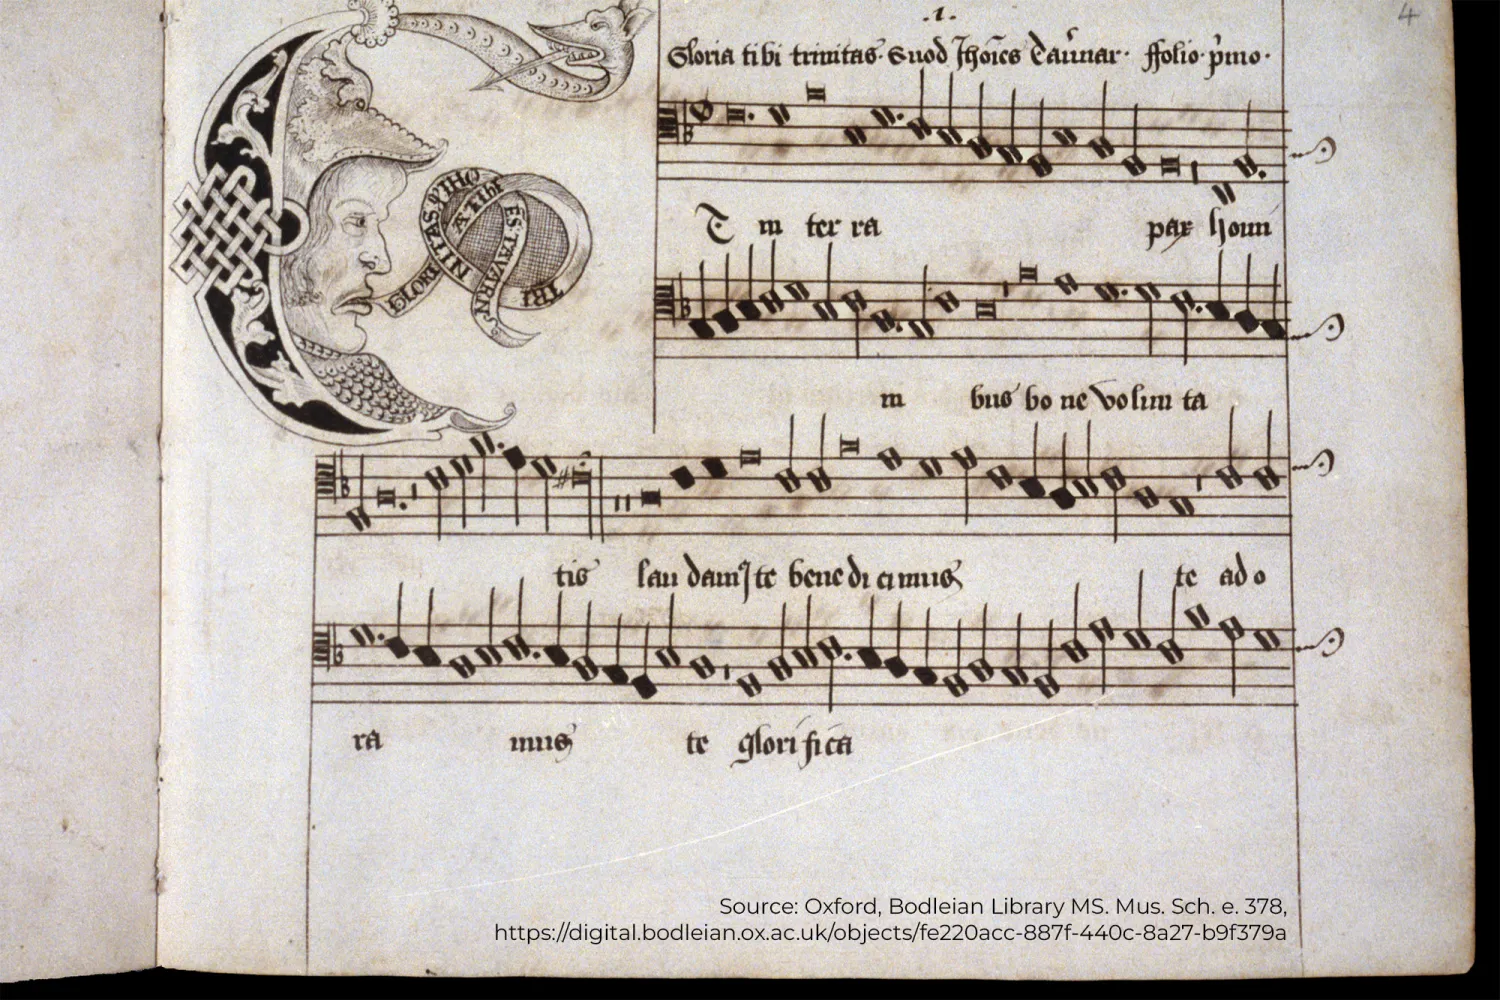 4
.1.
Gloria tibi trinitas. Quod Ihoīes Tauūar. ffolio p̄mo.
Et in ter ra pax homi
ni bus bo ne volun ta
tis lau dam⁹ te bene di cimus te ado
ra mus te glorifica
Source: Oxford, Bodleian Library MS. Mus. Sch. e. 378,
https://digital.bodleian.ox.ac.uk/objects/fe220acc-887f-440c-8a27-b9f379a